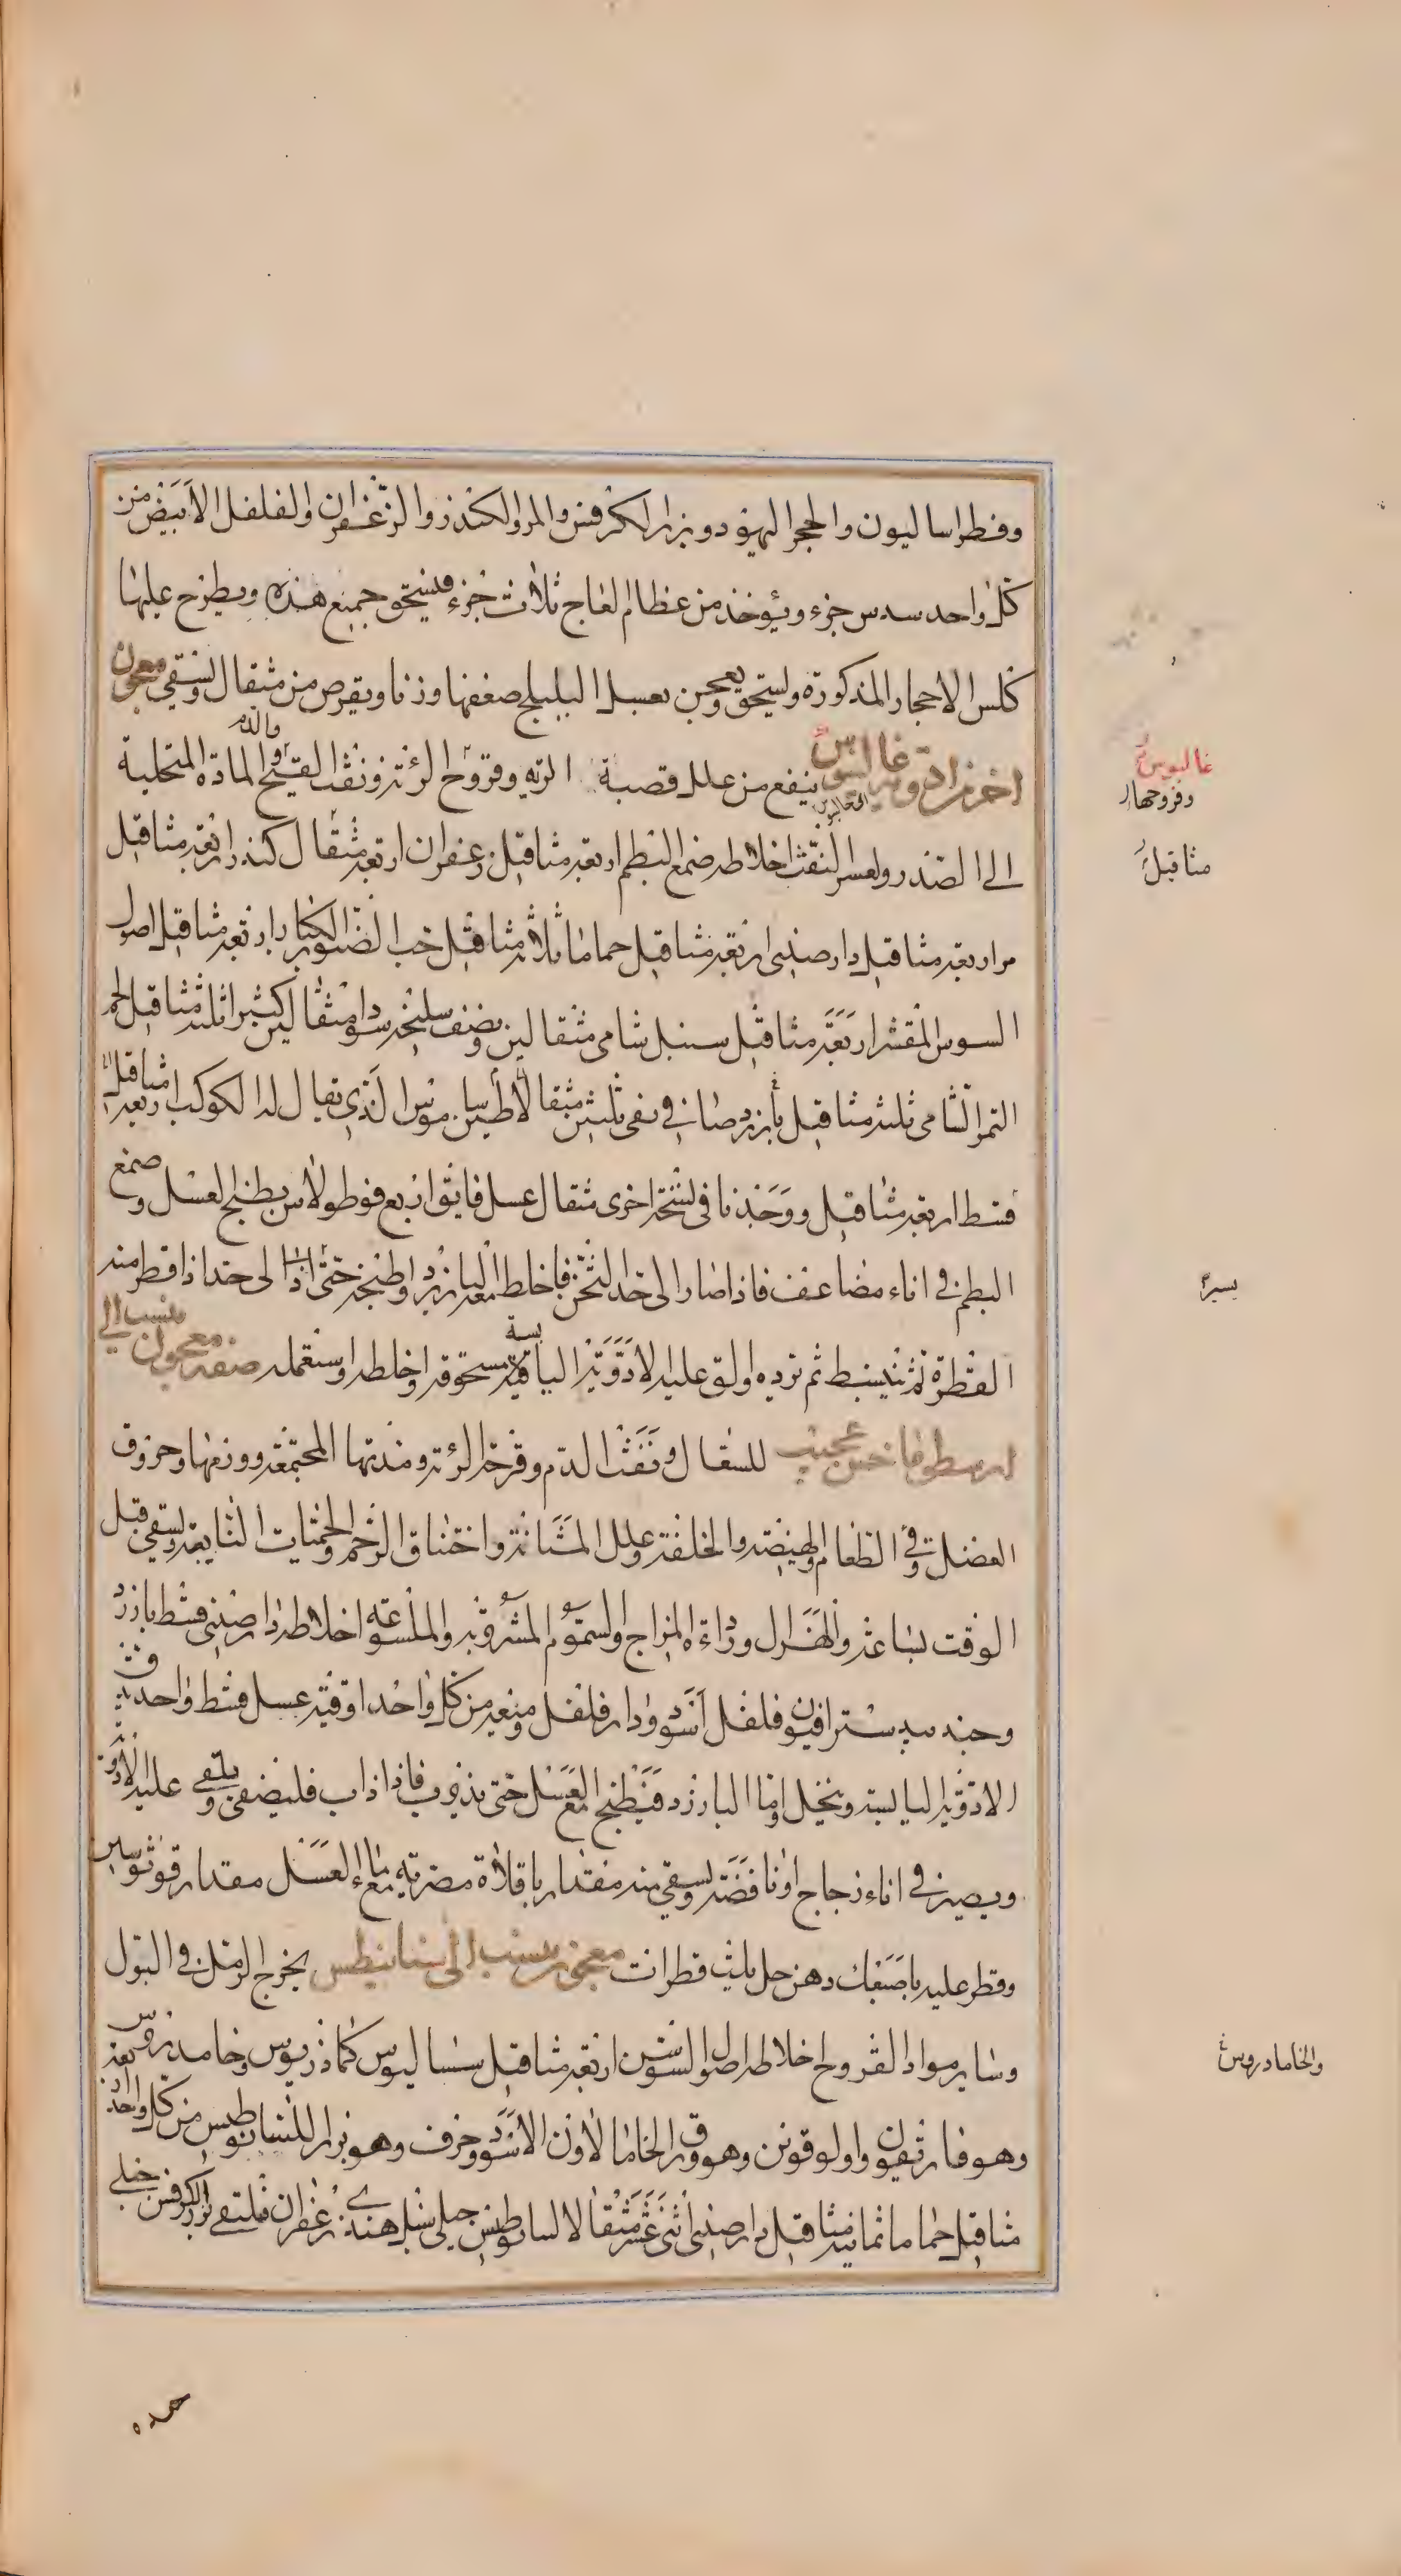 وفطراساليون والحجر اليهودى وبزر الكرفس والمر والكندر والزعفران والفلفل الأبيض من
كل واحد سدس جزء ويؤخذ من عظام العاج ثلاث جزء فليسحق جميع هذه ويطرح عليها
كلس الاحجار المذكورة وليسحق ويعجن بعسل البليلج ضعفها وزنا ويقرص من مثقال ويسقى معجون
اخر ينفع من علل قصبة الرية وقروح الرئة ونفث القيح والدم والمادة المتحلبة
الى الصدر ولعسر النفث اخلاطه صمغ البطم اربعة مثاقيل زعفران اربعة مثقال كندر اربعة مثاقيل
مر اربعة مثاقيل دارصينى اربعة مثاقيل حماما ثلاثة مثاقيل حب الصنوبر الكبار اربعة مثاقيل اصول
السوس المقشر اربعة مثاقيل سنبل شامى مثقالين ونصف سليخة سوداء مثقالين كثيرا ثلثة مثاقيل لحم
التمر الشامى ثلثة مثاقيل بارزد صافى نقى ثلثين مثقالا طين ساموس الذى يقال له الكوكب اربعة مثاقيل
قسط اربعة مثاقيل ووجدنا فى نسخة اخرى مثقال عسل فايق اربع قوطولاس يطبخ العسل وصمغ
البطم فى اناء مضاعف فاذا صار الى حد الثخن فاخلط معه البارزد واطبخه حتى اذا الى حد اذا قطر منه
القطرة لم تنبسط ثم برده والق عليه الادوية اليابسة مسحوقة واخلطه واستعمله صفة معجون ينسب الى
ارسطوماخس عجيب للسعال ونفث الدم وقرحة الرئة ومدتها المجتمعة وورمها وخروق
العضل وفى الطعام والهيضة والخلفة وعلل المثانة واختناق الرحم والحميات النايبة ويسقى قبل
الوقت بساعة والهزال ورداءة المزاج والسموم المشروبة والملسوعة اخلاطه دارصينى قسط بارزد
وجندبيدستر افيون فلفل اسود ودارفلفل وميعة من كل واحد اوقية عسل قسط واحد
الادوية اليابسة وينخل واما البارزد فيطبخ مع العسل حتى يذوب فاذا ذاب فليصفى ويلقى عليه الادوية
ويصير فى اناء زجاج او انا فضة ويسقى منه مقدار باقلاة مصرية مع ماء العسل مقدار قوثوسين
وقطر عليه باصبعك دهن حل ثلث قطرات معجون ينسب الى يخرج الرمل فى البول
وساير مواد القروح اخلاطه اصول السوسن اربعة مثاقيل سساليوس كماذريوس
وهوفاريقون واولوقونن وهو ورق الخامالاون الاسود وحرف وهو بزر من كل واحد اربعة
مثاقيل حماما ثمانية مثاقيل دارصينى اثنى عشر مثقالا جبلى سنبل هندى زعفران بزر الكرفس جبلى
غاليوس
وقروحها
مثاقيل
يسيرا
والخامادروس